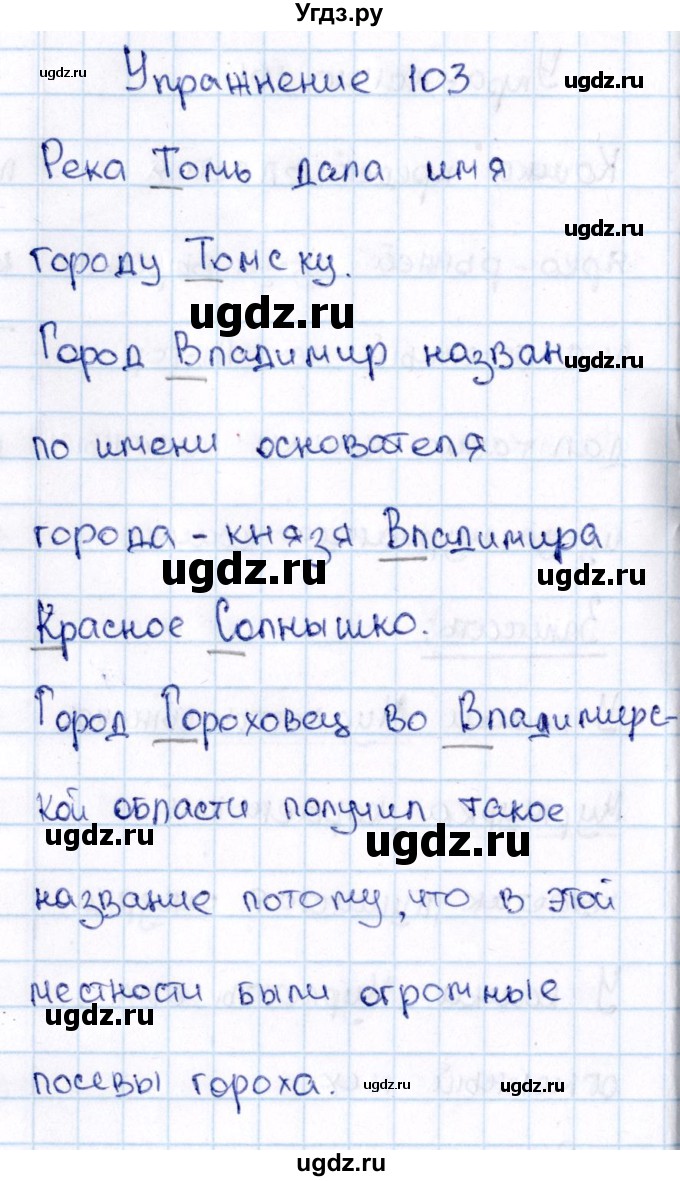 Угдз.ру
Упражнение 103
ugdz.ru ugdz.ru
Река Томь дала имя
ugdz.ru
городу Томску.
ugdz.ru
Город Владимир назван
ugdz.ru
по имени основателя
города - князя Владимира
ugdz.ru ugdz.ru
Красное Солнышко.
Город Гороховец во Владимирс-
кой области получил такое
ugdz.ru ugdz.ru
название потому, что в этой
местности были огромные
ugdz.ru
посевы гороха.
ugdz.ru ugdz.ru
ugdz.ru